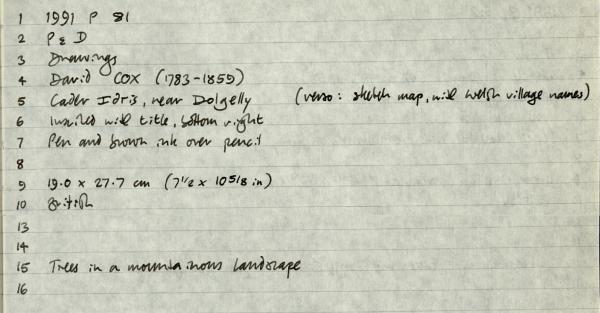 1 1991 P 81
2 P & D
3 Drawings
4 David COX (1783-1859)
5 Cader Idris, near Dolgelly (verso: sketch map, with Welsh village names)
6 Inscribed with title, bottom right
7 Pen and brown ink over pencil
8
9 19.0 x 27.7 cm (7 1/2 x 10 5/8 in)
10 British
13
14
15 Trees in a mountainous landscape
16